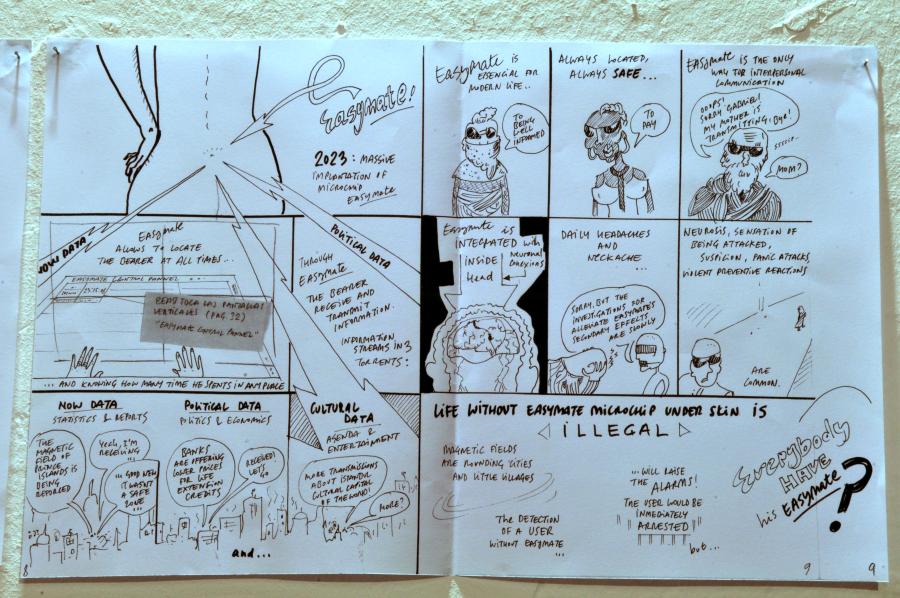 Easymate!
2023: MASSIVE
IMPLANTATION OF
MICROCHIP
EASYMATE
EASYMATE IS
ESSENCIAL FOR
MODERN LIFE..
TO
BEING
WELL
INFORMED
ALWAYS LOCATED,
ALWAYS SAFE...
TO
PAY
EASYMATE IS THE ONLY
WAY FOR INTERPERSONAL
COMMUNICATION
OOOPS!
SORRY GABRIEL!
MY MOTHER IS
TRANSMITTING, BYE!
MOM?
NOW DATA
Easymate
ALLOWS TO LOCATE
THE BEARER AT ALL TIMES...
EASYMATE CONTROL PANNEL
VERTICALES (PAG. 32)
"EASYMATE CONTROL PANNEL"
... AND KNOWING HOW MANY TIME HE SPENTS IN ANY PLACE
POLITICAL DATA
THROUGH
EASYMATE
THE BEARER
RECEIVE AND
TRANSMIT
INFORMATION.
INFORMATION
STREAMS IN 3
TORRENTS:
Easymate is
INTEGRATED with
Neuronal
Conexions
INSIDE
Head
DAILY HEADACHES
AND
NECKACHE
...
SORRY, BUT THE
INVESTIGATIONS FOR
ALLEGATE EASYMATE'S
SECONDARY EFFECTS
ARE SLOWLY
NEUROSIS, SENSATION OF
BEING ATTACKED,
SUSPICION, PANIC ATTACKS
VIOLENT PREVENTIVE REACTIONS
ARE
COMMON.
NOW DATA
STATISTICS & REPORTS
THE
MAGNETIC
FIELD OF
PRINCE
ISLANDS IS
BEING
REPORTED
Yeah, I'm
RECEIVING
...
... GOOD NEWS
IT WASN'T
A SAFE
ZONE ...
POLITICAL DATA
POLITICS & ECONOMICS
BANKS
ARE OFFERING
LOWER PRICES
FOR LIFE
EXTENSION
CREDITS
RECEIVED!
LET'S
GO
CULTURAL
DATA
AGENDA &
ENTERTAINMENT
MORE TRANSMISSIONS
ABOUT ISTANBUL
CULTURAL CAPITAL
OF THE WORLD!
MORE?
and...
8
LIFE WITHOUT EASYMATE MICROCHIP UNDER SKIN IS
ILLEGAL
MAGNETIC FIELDS
ARE ROUNDING CITIES
AND LITTLE VILLAGES
THE DETECTION
OF A USER
WITHOUT EASYMATE
...
...WILL RAISE
THE ALARMS!
THE USER WOULD BE
INMEDIATELY
ARRESTED
but...
Everybody
HAVE
his EASYMATE?
9
9